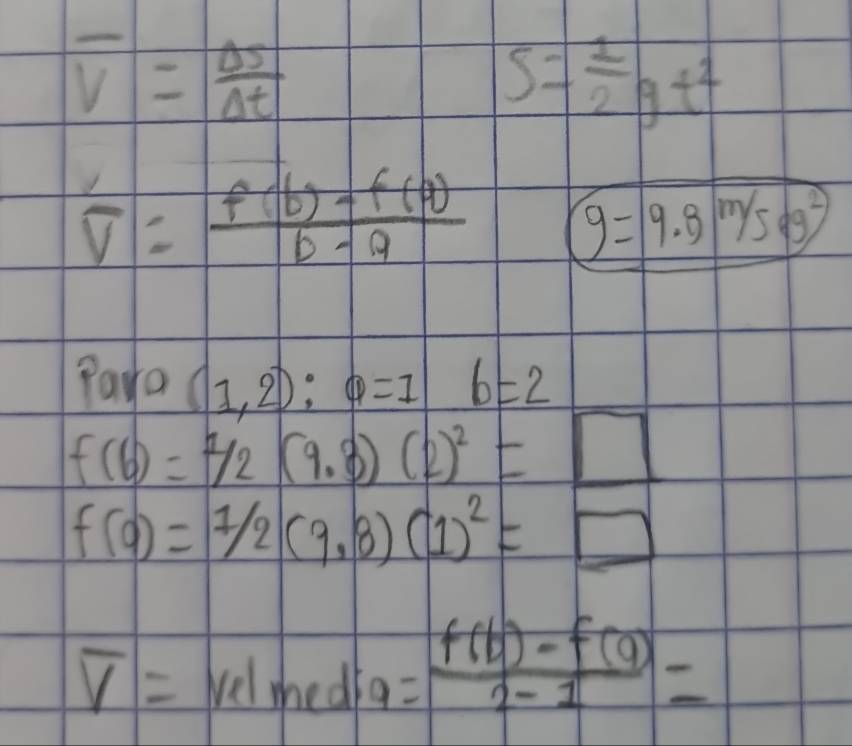 V̅ = Δs/Δt    S = 1/2 gt²
V̅ = f(b) - f(a) / b - a    g = 9.8 m/seg²
Para (1,2): a=1  b=2
f(b) = 1/2 (9.8) (2)² = □
f(a) = 1/2 (9,8) (1)² = □
V̅ = vel media = f(b) - f(a) / 2 - 1 =